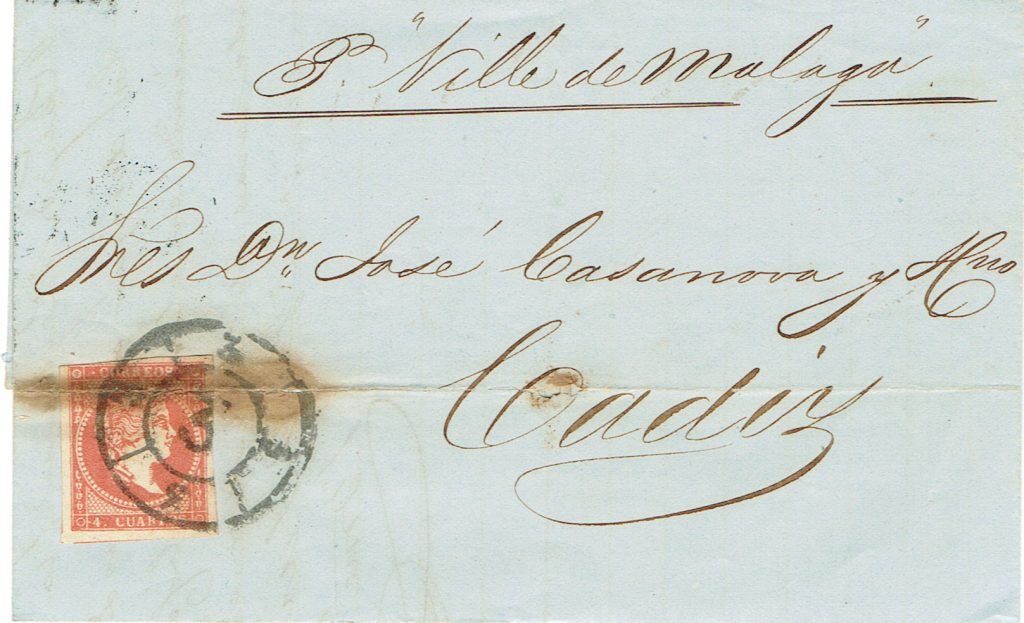 P. "Ville de Malaga".
Sres Dn. José Casanova y Hno
Cadiz
CORREOS
4. CUARTOS